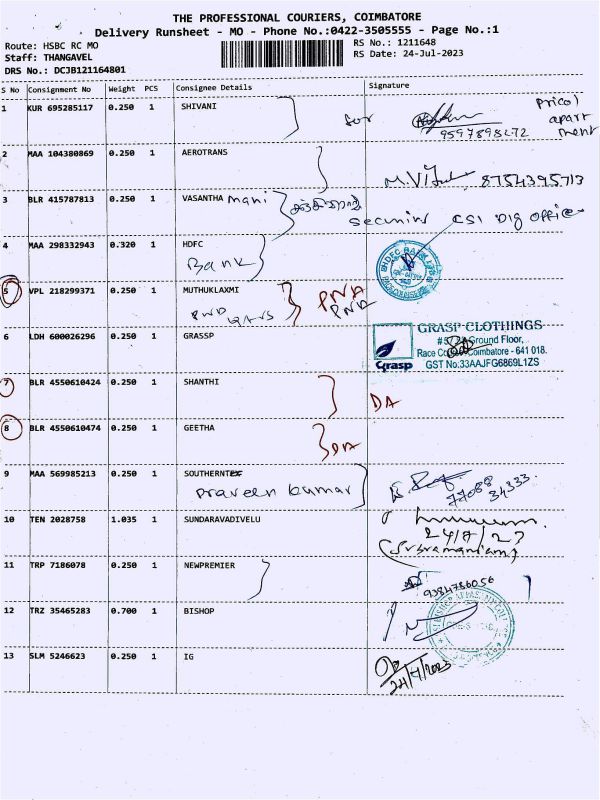 THE PROFESSIONAL COURIERS, COIMBATORE
Delivery Runsheet - MO - Phone No.:0422-3505555 - Page No.:1
Route: HSBC RC MO
Staff: THANGAVEL
DRS No.: DCJB121164801
RS No.: 1211648
RS Date: 24-Jul-2023
S No Consignment No Weight PCS Consignee Details Signature
1 KUR 695285117 0.250 1 SHIVANI
for
Pricol
apart
ment
9597898272
2 MAA 104380869 0.250 1 AEROTRANS
8754395713
3 BLR 415787813 0.250 1 VASANTHA mani
CSI Dig Office
4 MAA 298332943 0.320 1 HDFC
Bank
HDFC BANK
5 VPL 218299371 0.250 1 MUTHUKLAXMI
PWD
PNA
PNA
6 LDH 600026296 0.250 1 GRASSP
GRASP CLOTHINGS
Ground Floor,
Race Coimbatore - 641 018.
GST No.33AAJFG6869L1ZS
Grasp
7 BLR 4550610424 0.250 1 SHANTHI
DA
8 BLR 4550610474 0.250 1 GEETHA
DA
9 MAA 569985213 0.250 1 SOUTHERNTEX
Praveen kumar
77088
34333
10 TEN 2028758 1.035 1 SUNDARAVADIVELU
24/7/23
(Subramaniam)
11 TRP 7186078 0.250 1 NEWPREMIER
9384786056
12 TRZ 35465283 0.700 1 BISHOP
13 SLM 5246623 0.250 1 IG
24/7/2023